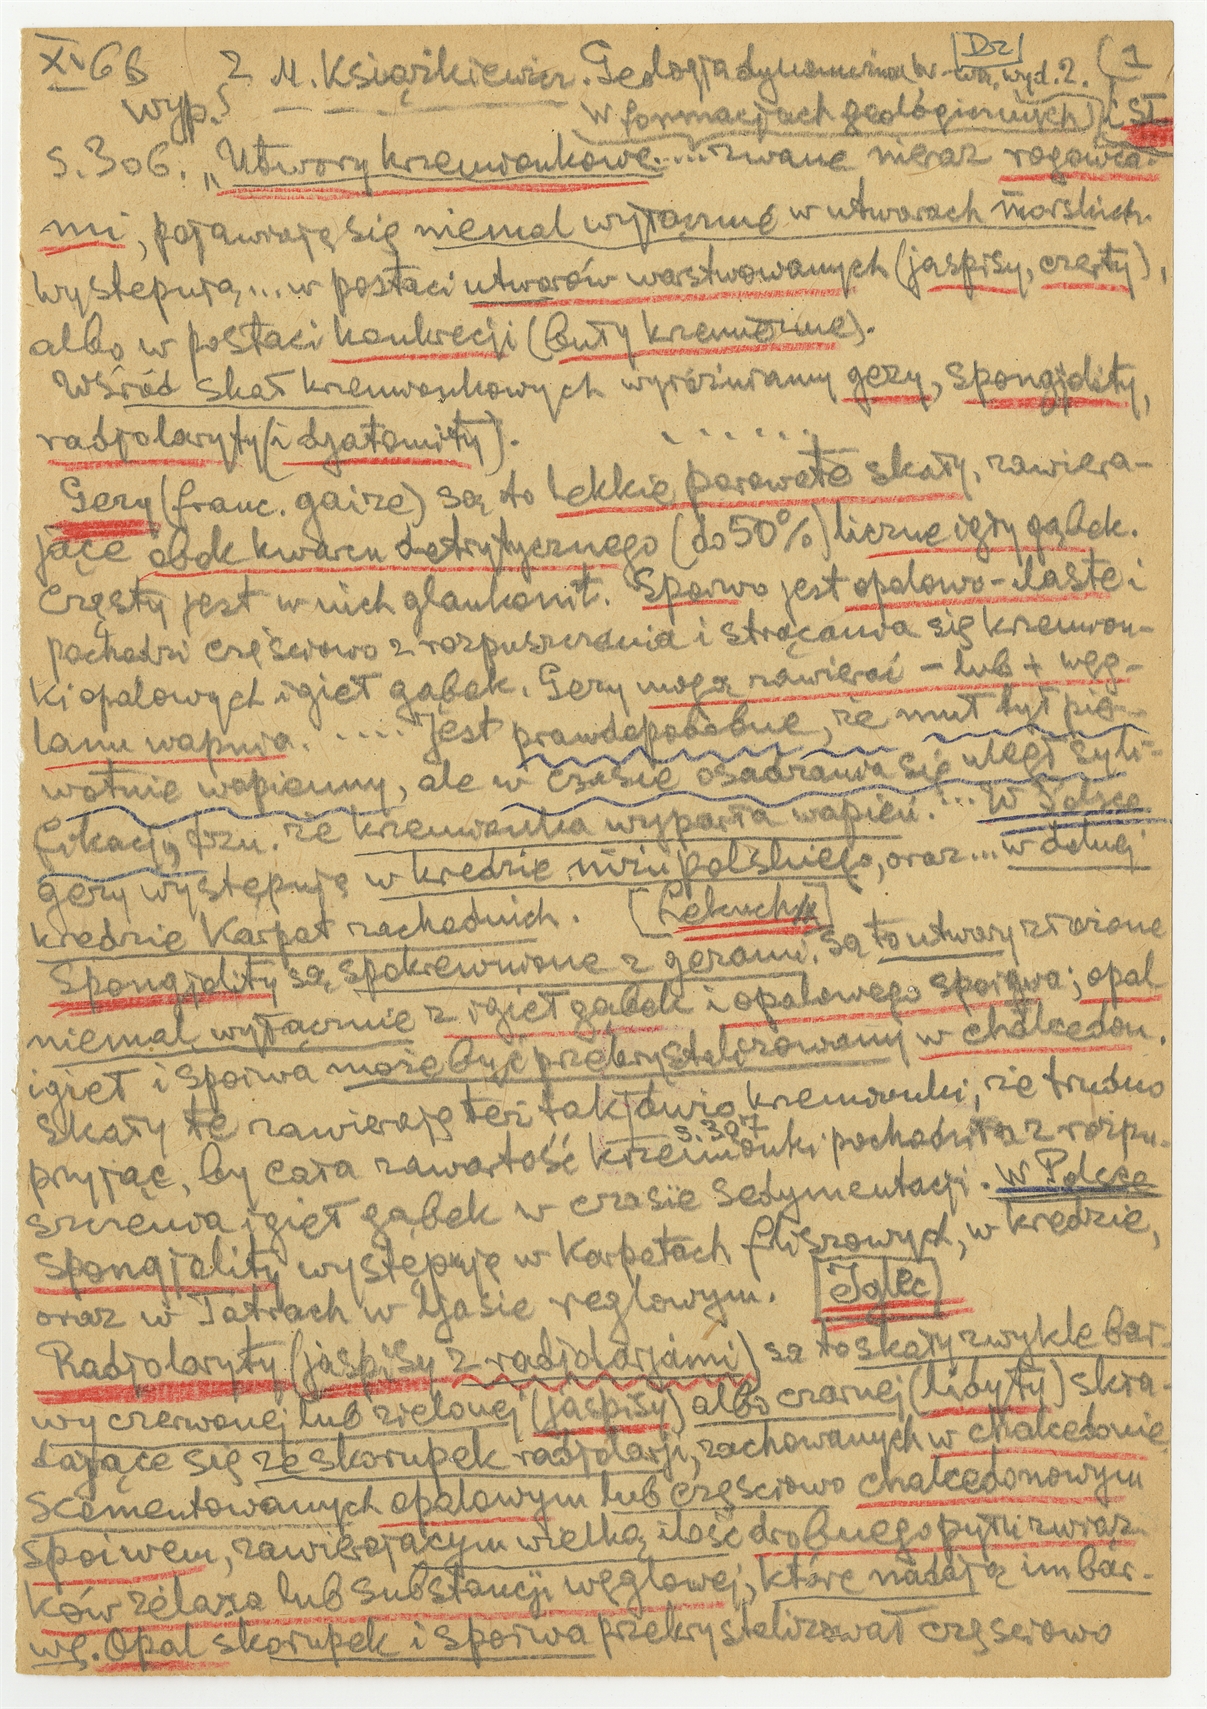 XI 66 z M. Książkiewicz. Geologja dynamiczna, W-wa, wyd. 2. (1
wyp. w formacjach geologicznych)
s. 306. „Utwory krzemionkowe..... zwane nieraz rogowca-
mi, pojawiają się niemal wyłącznie w utworach morskich.
Występują... w postaci utworów warstwowanych (jaspisy, czerty),
albo w postaci konkrecji (buły krzemienne).
Wśród skał krzemionkowych wyróżniamy gezy, spongjolity,
radjolaryty (i djatomity). . . . . . .
Gezy (franc. gaize) są to lekkie, porowate skały, zawiera-
jące obok kwarcu detrytycznego (do 50%) liczne igły gąbek.
Częsty jest w nich glaukonit. Spoiwo jest opalowo-ilaste i
pochodzi częściowo z rozpuszczania i strącania się krzemion-
ki opalowych igieł gąbek. Gezy mogą zawierać - lub + węg-
lanu wapnia. .... Jest prawdopodobne, że muł był pier-
wotnie wapienny, ale w czasie osadzania się uległ syli-
fikacji, tzn. że krzemionka wyparła wapień. ... W Polsce
gezy występują w kredzie niżu polskiego, oraz... w dolnej
kredzie Karpat zachodnich. [Łekuch]
Spongjolity są spokrewnione z gezami. Są to utwory złożone
niemal wyłącznie z igieł gąbek i opalowego spoiwa; opal
igieł i spoiwa może być przekrystalizowany w chalcedon.
Skały te zawierają też tak dużo krzemionki, że trudno
s. 307
przyjąć, by cała zawartość krzemionki pochodziła z rozpu-
szczenia igieł gąbek w czasie sedymentacji. W Polsce
spongjolity występują w Karpatach fliszowych, w kredzie,
oraz w Tatrach w ljasie reglowym. [Iglec]
Radjolaryty (jaspisy z radjolarjami) są to skały zwykle bar-
wy czerwonej lub zielonej (jaspisy) albo czarnej (lidyty) skła-
dające się ze skorupek radjolarji, zachowanych w chalcedonie
scementowanych opalowym lub częściowo chalcedonowym
spoiwem, zawierającym wielką ilość drobnego pyłu związ-
ków żelaza lub substancji węglowej, które nadają im bar-
wę. Opal skorupek i spoiwa przekrystalizował częściowo